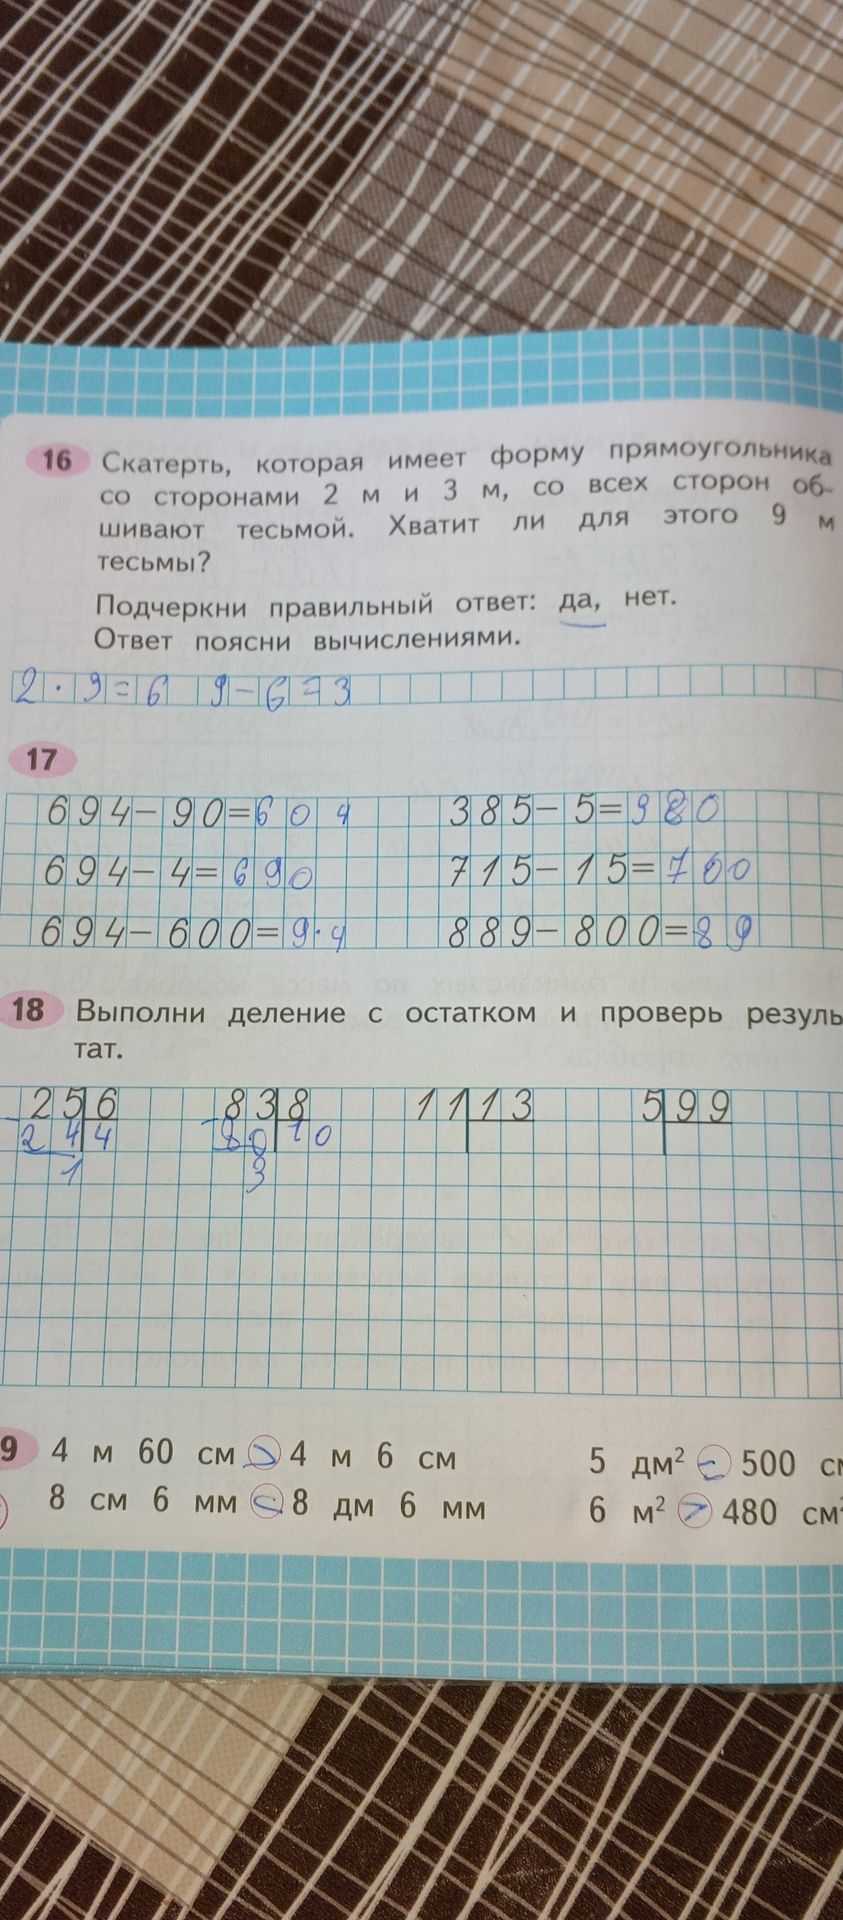 16 Скатерть, которая имеет форму прямоугольника
со сторонами 2 м и 3 м, со всех сторон об-
шивают тесьмой. Хватит ли для этого 9 м
тесьмы?
Подчеркни правильный ответ: да, нет.
Ответ поясни вычислениями.
2 · 9 = 6 9 - 6 = 3
17
694 - 90 = 604 385 - 5 = 980
694 - 4 = 690 715 - 15 = 700
694 - 600 = 9·4 889 - 800 = 89
18 Выполни деление с остатком и проверь резуль
тат.
25 6 83 8 11 13 5 99
24 4 80 10
1 3
9 4 м 60 см > 4 м 6 см 5 дм² = 500 см
8 см 6 мм < 8 дм 6 мм 6 м² > 480 см²